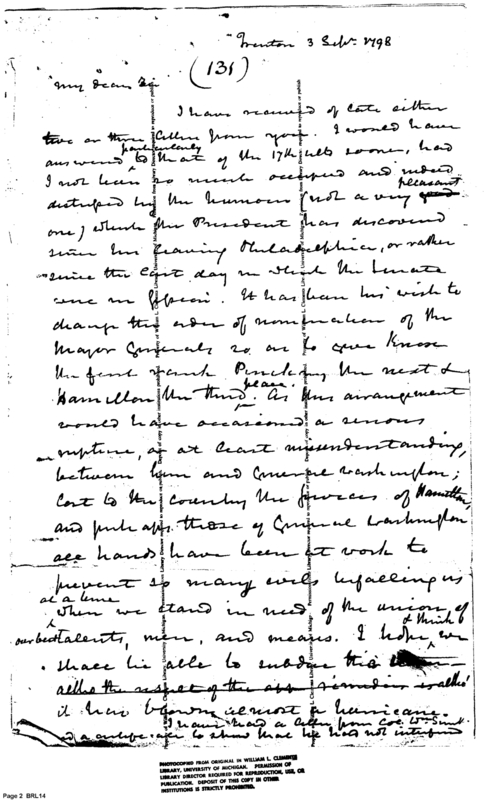 Trenton 3 Sept. 1798
(131)
My dear Sir
I have received of late either
two or three letters from you. I would have
particularly
answered to that of the 17th ulto sooner, had
I not been so much occupied and indeed
pleasant
disturbed by the humour (not a very good
one) which the President has discovered
since his leaving Philadelphia, or rather
since the last day in which the Senate
were in session. It has been his wish to
change the order of nomination of the
Major Generals so as to give Knox
the first rank Pinckney the next &
place.
Hamilton the third. As this arrangement
would have occasioned a serious
rupture, or at least misunderstanding,
between him and General Washington;
lost to the country the services of Hamilton,
and perhaps those of General Washington
all hands have been at work to
prevent so many evils befalling us
at a time
when we stand in need of the union of
& think
our best talents, men, and means. I hope we
shall be able to subdue this
altho the
it has blown almost a hurricane.
I have had a letter from Col. Wm. Smith
to show that he has not
PHOTOCOPIED FROM ORIGINAL IN WILLIAM L. CLEMENTS
LIBRARY, UNIVERSITY OF MICHIGAN. PERMISSION OF
LIBRARY DIRECTOR REQUIRED FOR REPRODUCTION, USE, OR
PUBLICATION. DEPOSIT OF THIS COPY IN OTHER
INSTITUTIONS IS STRICTLY PROHIBITED.
Page 2 BRL14